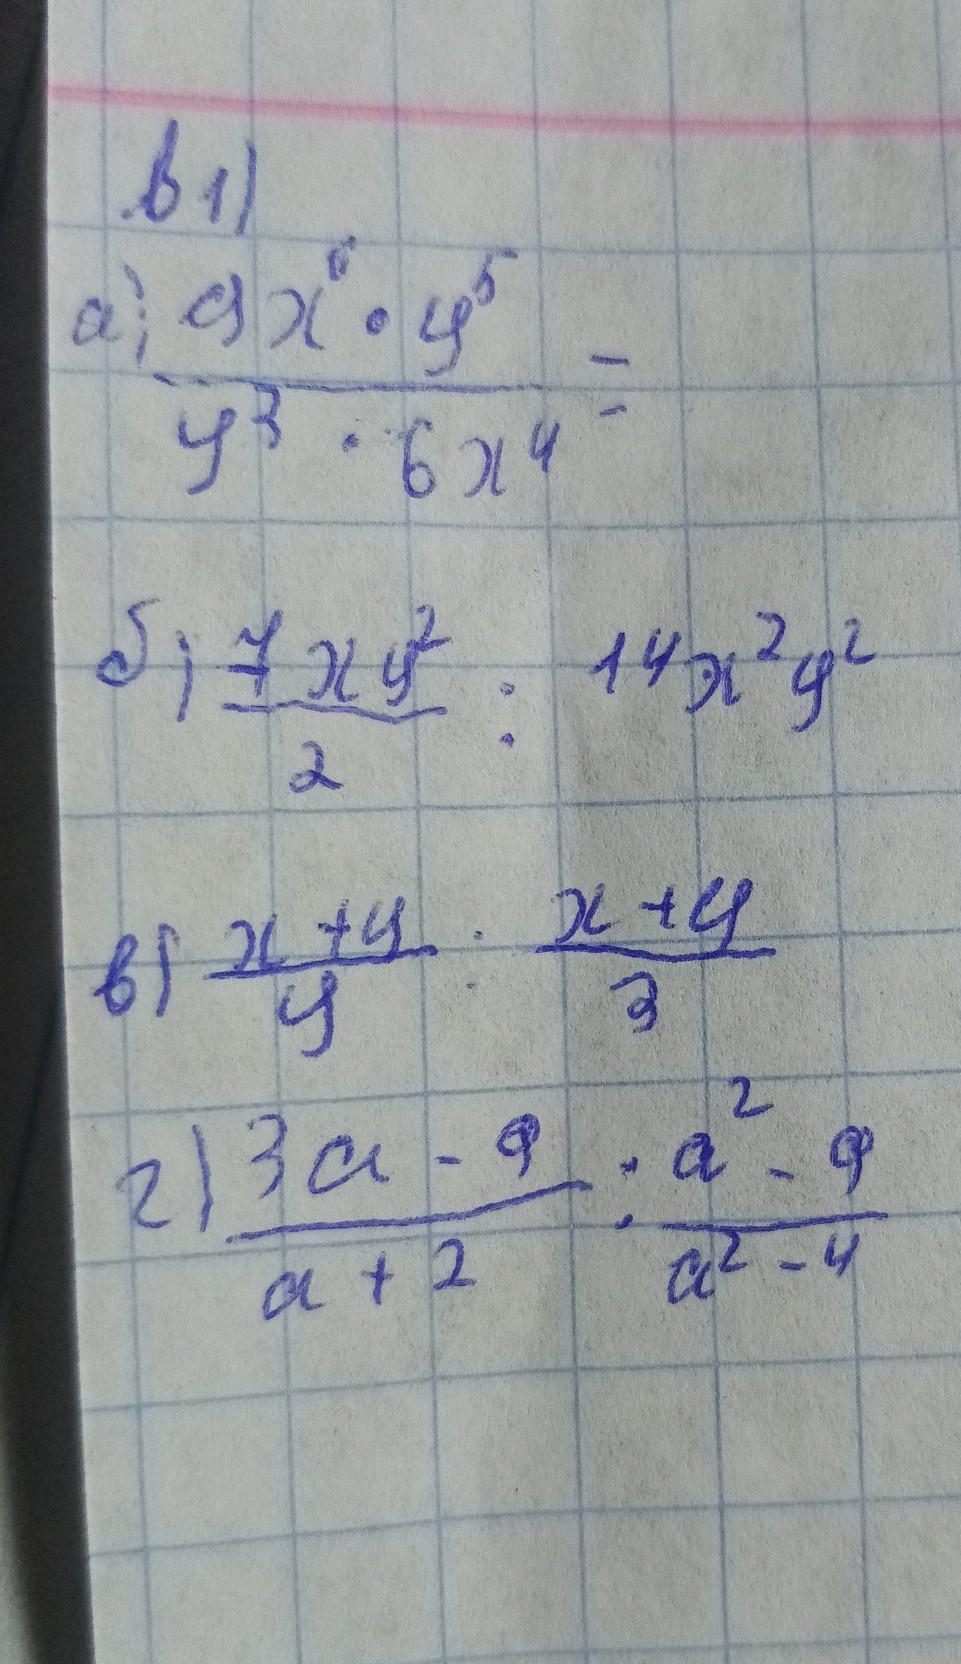 в1)
а) 9x⁶ · y⁵ =
y³ · 6x⁴
б) 7xy² : 14x²y²
2
в) x+y : x+y
y 3
г) 3a - 9 : a² - 9
a + 2 a² - 4